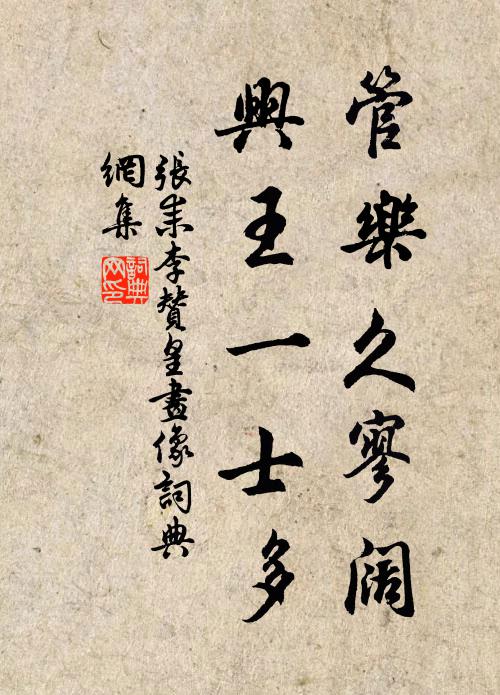 管樂久寥阔
興王一士多
張耒李贊皇畫像詞典
網集
詞典
网印